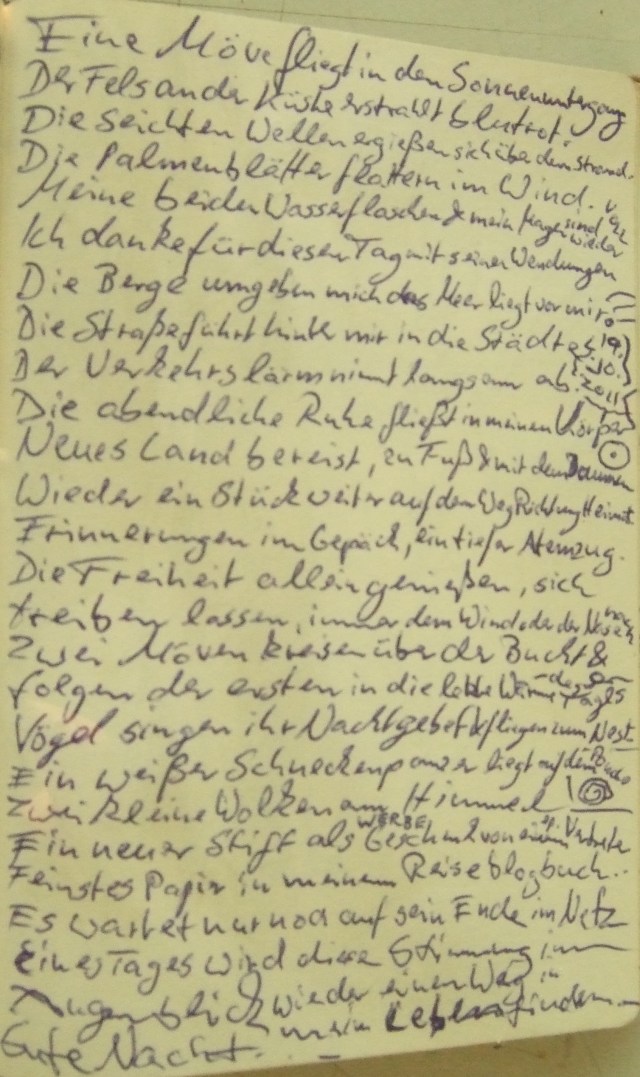 Eine Möve fliegt in den Sonnenuntergang
Der Fels an der Küste erstrahlt blutrot.
Die seichten Wellen ergießen sich über dem Strand.
Die Palmenblätter flattern im Wind.
Meine beiden Wasserflaschen & mein Magen sind wieder voll
Ich danke für diesen Tag mit seinen Wendungen
Die Berge umgeben mich das Meer liegt vor mir.
Die Straße führt hinter mir in die Städte
19.
10.
2011
Der Verkehrslärm nimt langsam ab.
Die abendliche Ruhe fließt in meinen Körper
Neues Land bereist, zu Fuß & mit dem Daumen
Wieder ein Stück weiter auf dem Weg Richtung Heimat.
Erinnerungen im Gepäck, ein tiefer Atemzug.
Die Freiheit allein genießen, sich
treiben lassen, immer dem Wind oder der Nase nach
Zwei Möven kreisen über der Bucht &
folgen der ersten in die letzte Wärme des Tages
Vögel singen ihr Nachtgebet & fliegen zum Nest
Ein weißer Schneckenpanzer liegt auf dem
Zwei kleine Wolken am Himmel
Ein neuer Stift als WERBE Geschenk von einem Vertreter
Feinstes Papier in meinem Reiseblogbuch..
Es wartet nur noch auf sein Ende im Netz
Eines Tages wird diese Stimmung im
Augenblick wieder einen Weg in
mein Leben finden
Gute Nacht.